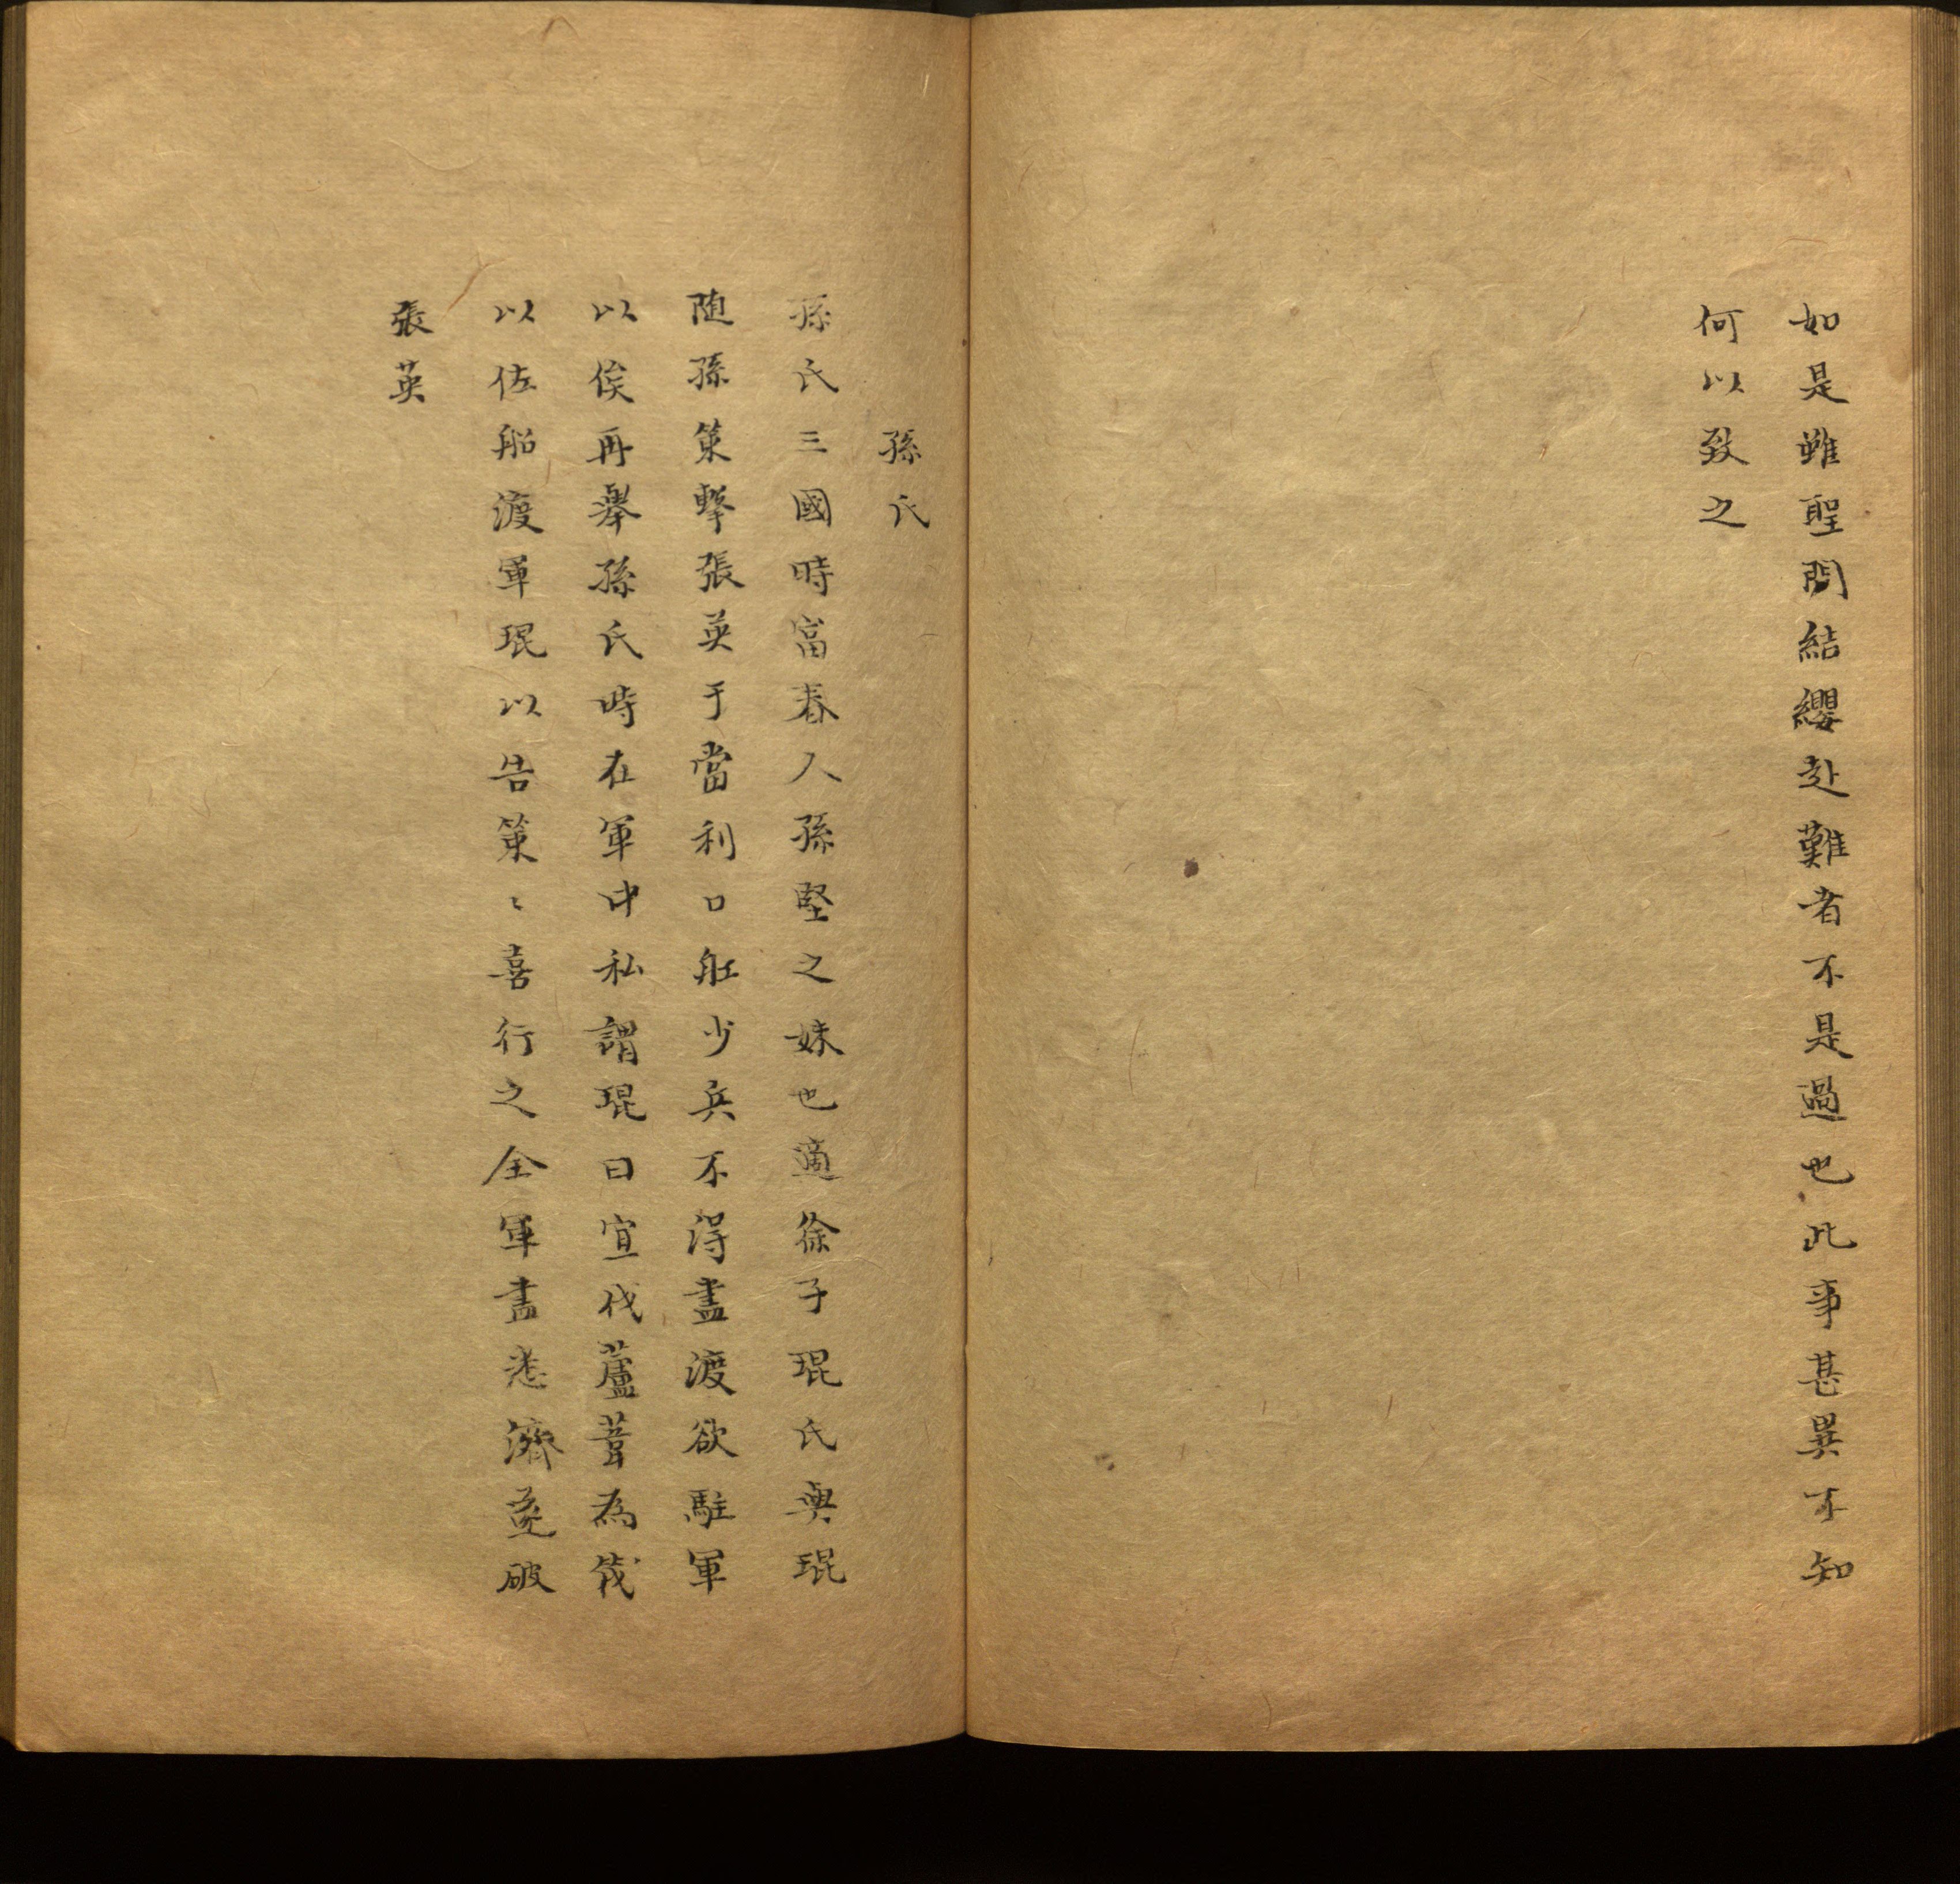 如是雖聖門結纓赴難者不是過也此事甚異不知
何以致之
孫氏
孫氏三國時富春人孫堅之妹也適徐子琨氏與琨
随孫策擊張英于當利口舡少兵不得盡渡欲駐軍
以俟再舉孫氏時在軍中私謂琨曰宜伐蘆葦為筏
以佐船渡軍琨以告策〻喜行之全軍盡悉濟遂破
張英